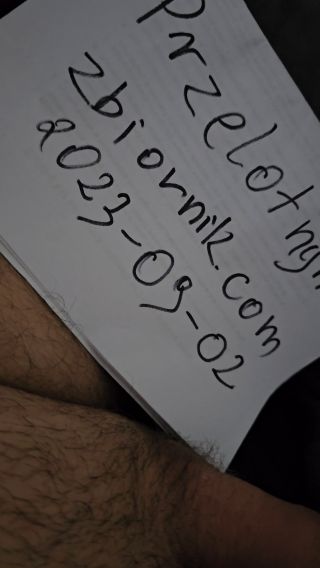 Przelotny
zbiornik.com
2023-09-02